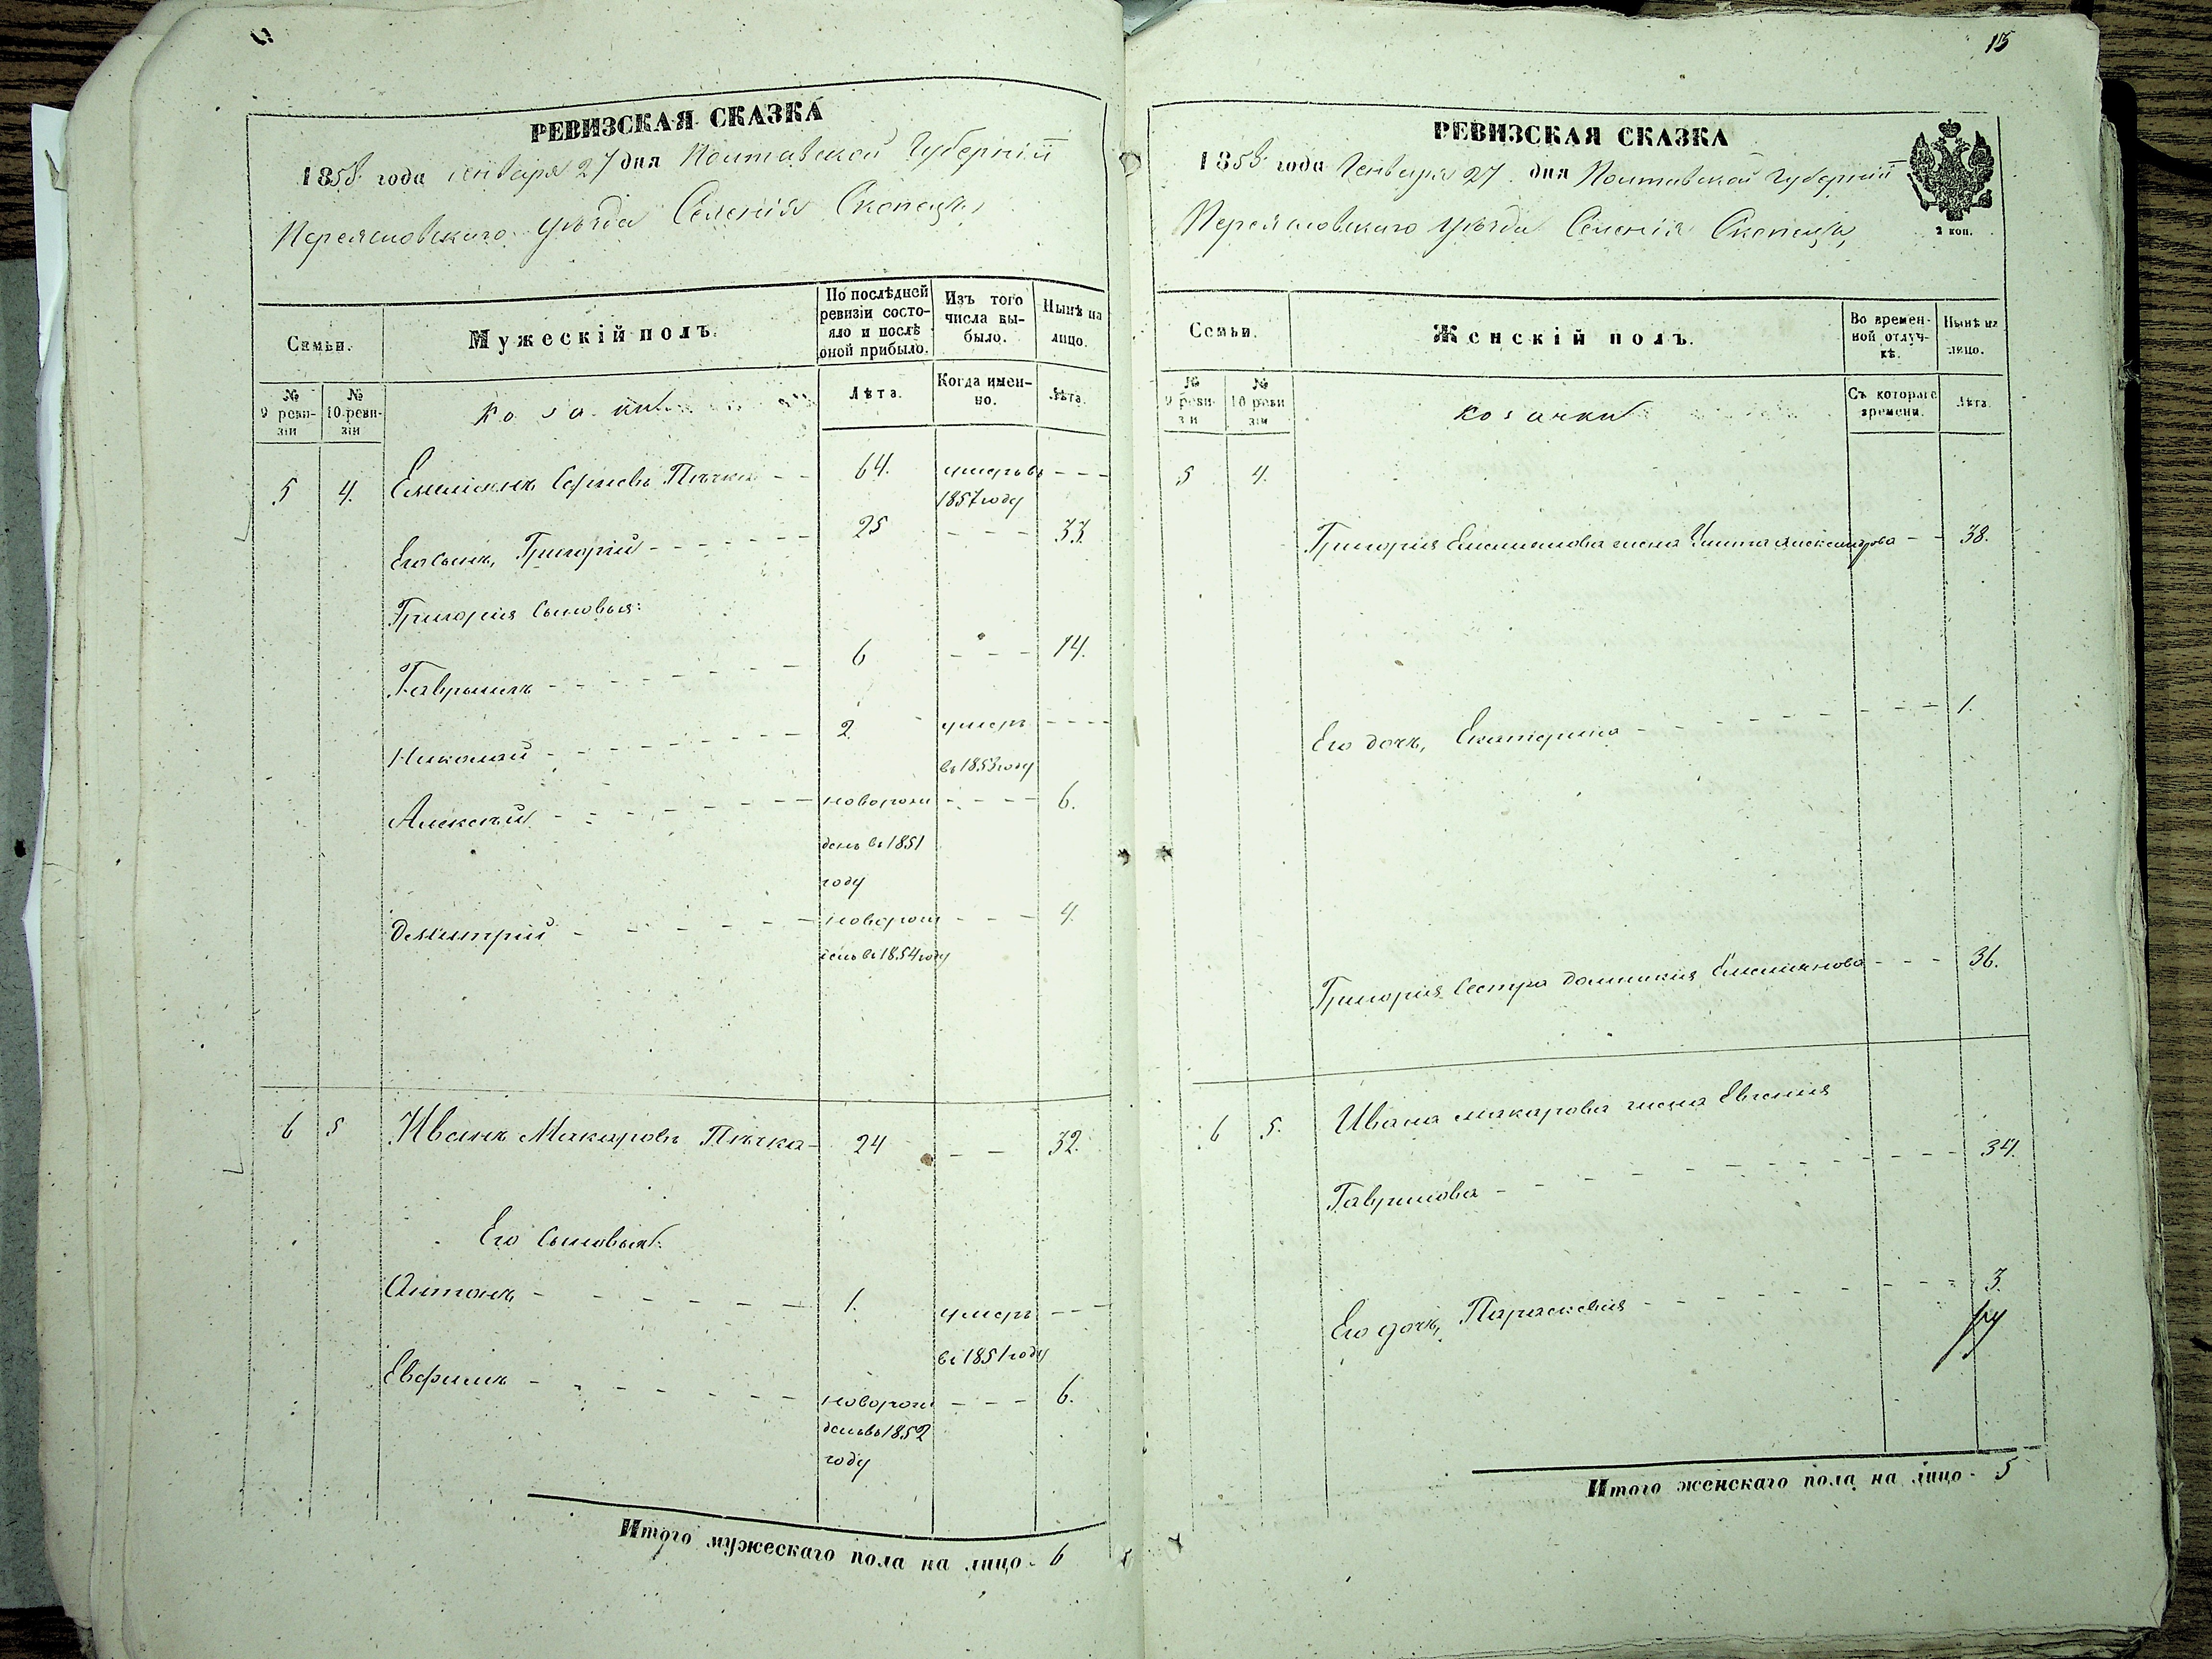 РЕВИЗСКАЯ СКАЗКА
1858 года Генваря 27 дня Полтавской Губерніи
Переясловского Уѣзда Селенія Скопецкъ
Семьи.
Мужескій полъ.
По послѣдней ревизіи состояло и послѣ оной прибыло.
Изъ того числа выбыло.
Нынѣ на лицо.
№ 9 ревизіи
№ 10 ревизіи
Козаки
Лѣта.
Когда именно.
Лѣта.
5 4. Емеліянъ Пѣчка 64. умеръ въ
1857 году
Его сынъ, Григорій 25 33.
Григорія сыновья:
Гавріилъ 6 14.
Николай 2. умеръ
въ 1853 году
Алексѣй новорож 6.
денъ въ 1851
году
Димитрій новорож 4.
денъ въ 1854 году
6 5 Иванъ Макаровъ Пѣчка 24 32.
Его сыновья:
Антонъ 1. умеръ
въ 1851 году
Евфимъ новорож 6.
денъ въ 1852
году
Итого мужескаго пола на лицо 6
15
РЕВИЗСКАЯ СКАЗКА
1858 года Генваря 27 дня Полтавской Губерніи
Переясловского Уѣзда Селенія Скопецкъ
2 коп.
Семьи.
Женскій полъ.
Во временной отлучкѣ.
Нынѣ на лицо.
№ 9 ревизіи
№ 10 ревизіи
Козачки
Съ котораго времени.
Лѣта.
5 4.
Григорія Емеліянова жена Александрова 38.
Его дочь, Екатерина 1.
Григорія Сестра Домникія Емеліянова 36.
6 5. Ивана Макарова жена Евгенія
Гаврилова 34.
Его дочь, Параскевія 3.
Итого женскаго пола на лицо 5